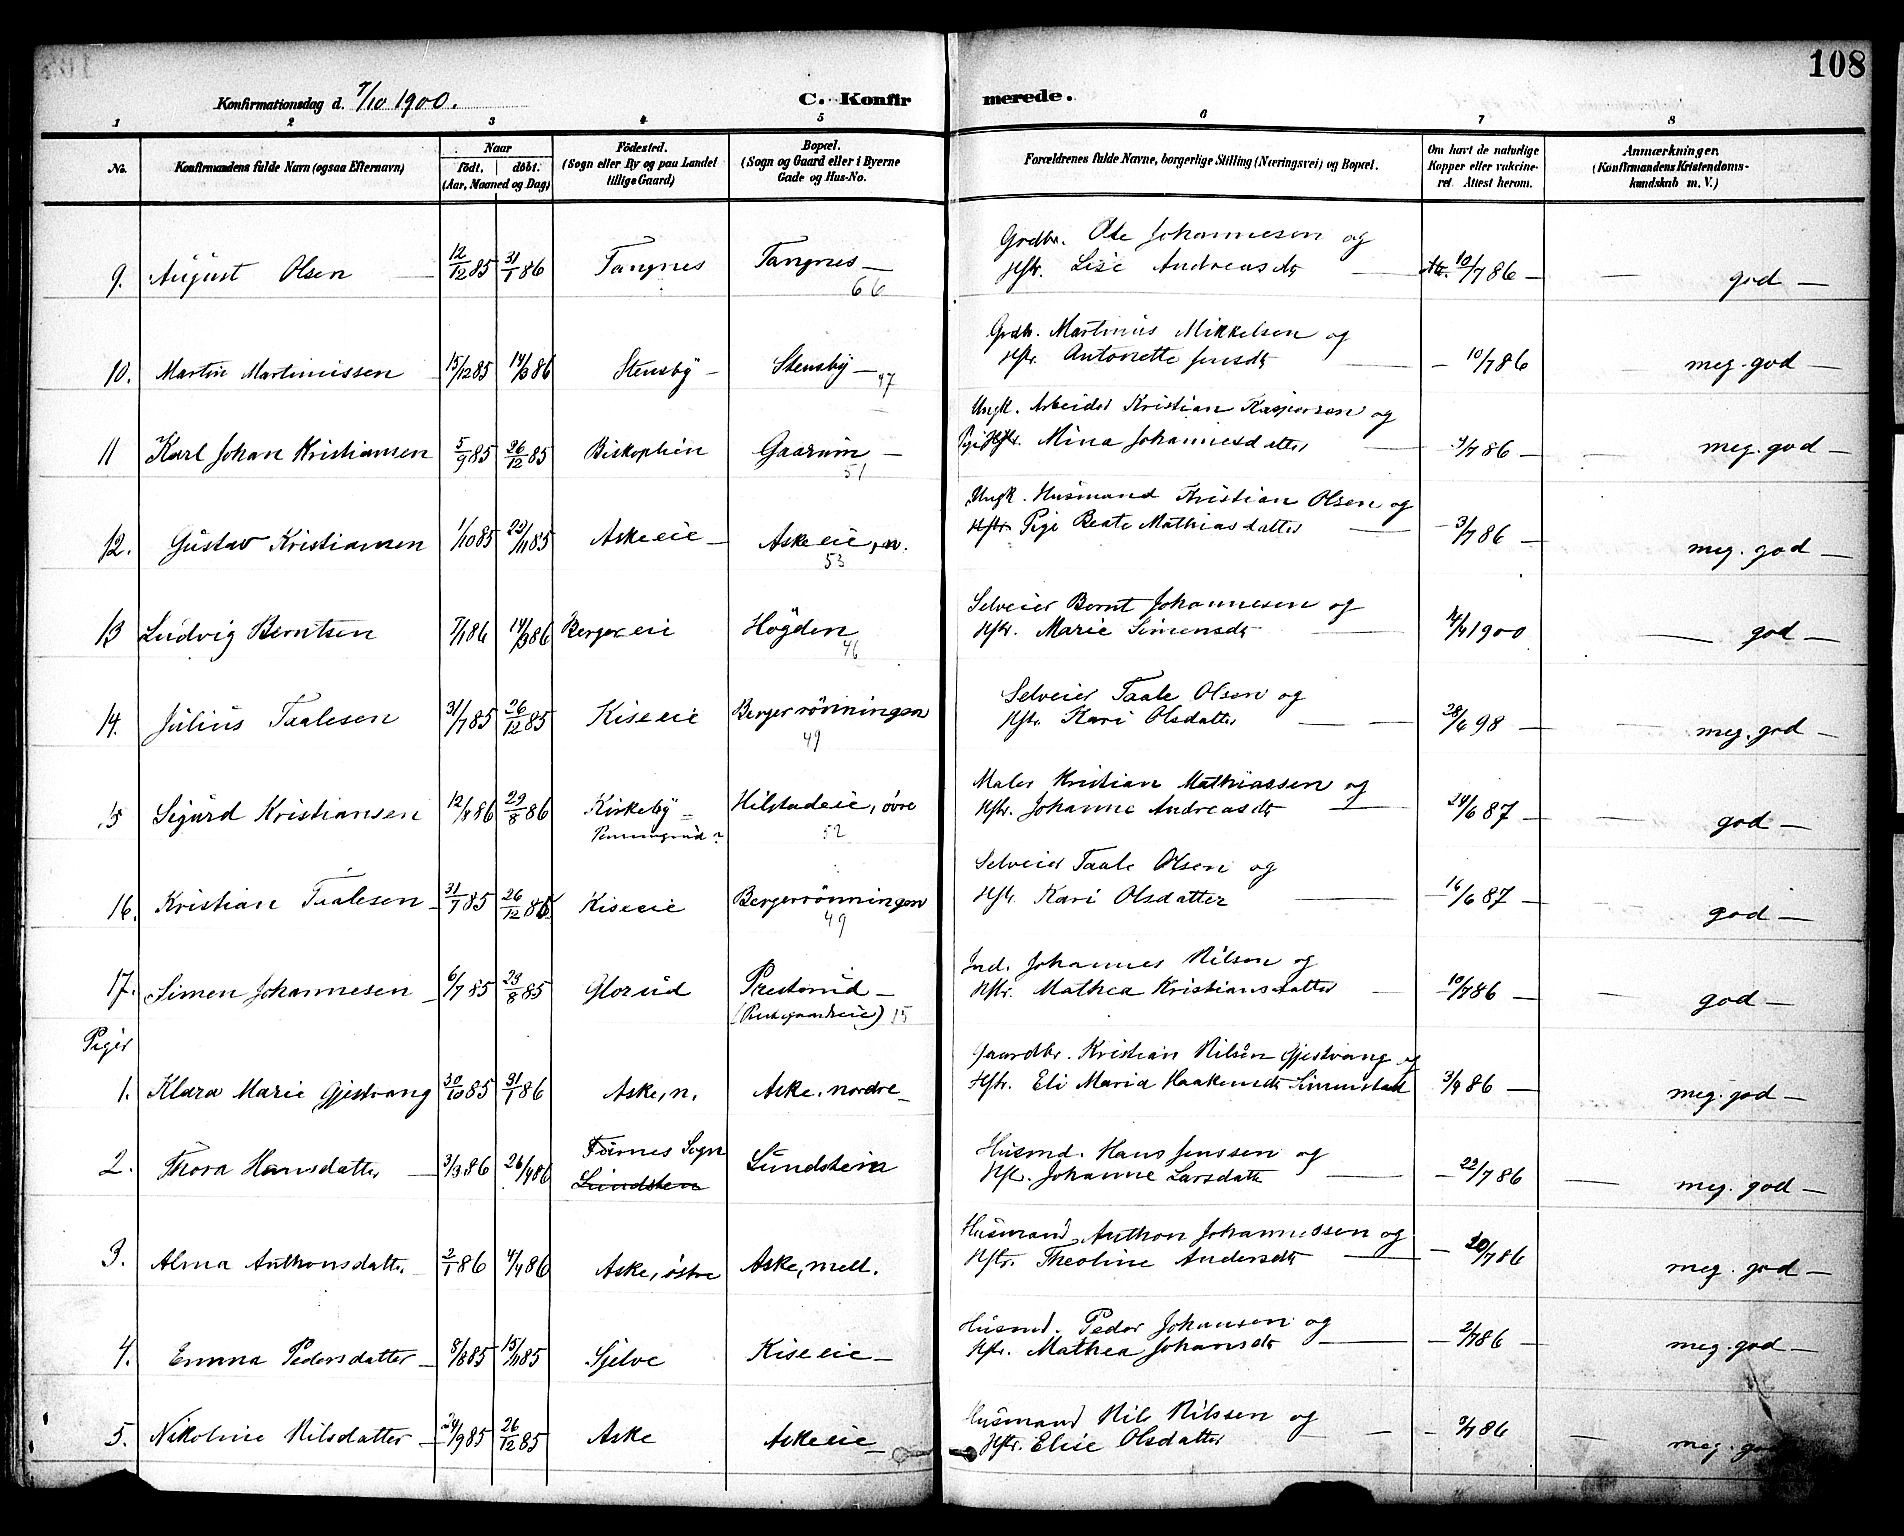 108
Konfirmationsdag d. 7/10 1900. C. Konfirmerede.
1 2 3 4 5 6 7 8
No. Konfirmandens fulde Navn (ogsaa Efternavn) Naar født, døbt. (Aar, Maaned og Dag) Fødested. (Sogn eller By og paa Landet tillige Gaard) Bopæl. (Sogn og Gaard eller i Byerne Gade og Hus-No. Forældrenes fulde Navne, borgerlige Stilling (Næringsvei) og Bopæl. Om havt de naturlige Kopper eller vakcineret. Attest herom. Anmærkninger. (Konfirmandens Kristendomskundskab m. V.)
9. August Olsen 12/12 85 31/1 86 Tangnes Tangnes 66 Grdbr. Ole Johannesen og Hstr. Lise Andreasdtr Att. 10/7 86 god
10. Martin Martiniussen 15/12 85 14/3 86 Stensby Stensby 47 Grdb. Martinius Mikkelsen og Hstr. Antonette Jensdtr 10/7 86 meg. god
11 Karl Johan Kristiansen 5/9 85 26/12 85 Biskoplien Gaarum 51 Ungk. Arbeider Kristian Kaspersen og Pige Mina Johannesdatter 4/7 86 meg. god
12. Gustav Kristiansen 1/10 85 22/11 85 Aske eie Aske eie, n. 53 Ungk. Husmand Kristian Olsen og Hstr Pige Beate Mathiasdatter 3/7 86 meg. god
13 Ludvig Berntsen 7/1 86 14/3 86 Berger eie Høgden 46 Selveier Bernt Johannesen og Hstr. Marie Simensdtr 1900 god
14. Julius Taalesen 31/7 85 26/12 85 Kise eie Bergerrønningen 49 Selveier Taale Olsen og Hstr. Kari Olsdatter 28/6 98 meg. god
15 Sigurd Kristiansen 12/4 86 29/8 86 Kirkeby Hilstadeie, øvre 52 Maler Kristian Mathiassen og Hstr. Johanne Andreasdtr 24/6 87 god
16. Kristian Taalesen 31/7 85 26/12 85 Kiseeie Bergerrønningen 49 Selveier Taale Olsen og Hstr Kari Olsdatter 16/6 87 god
17. Simen Johannesen 6/7 85 23/8 85 Glorud Presterud 15 Ind. Johannes Nilsen og Hstr. Mathea Kristiansdatter 10/7 86 god
Piger
1. Klara Marie Gjestvang 30/10 85 31/1 86 Aske, n. Aske, nordre Gaardbr. Kristian Nilsen Gjestvang og Hstr. Eli Maria Haakensdtr 3/7 86 meg. god
2. Thora Hansdatter 3/3 86 26/4 86 Furnes Sogn Lundsten Lundstein Husmd. Hans Jenssen og Hstr. Johanne Larsdatter 22/7 86 meg. god
3. Alma Anthonsdatter 2/1 86 4/4 86 Aske, østre Aske, mell. Husmand Anthon Johannessen og Hstr. Theoline Andersdtr 20/7 86 meg. god
4. Emma Pedersdatter 8/8 85 15/11 85 Sjelve Kise eie Husmd. Peder Johansen og Hstr. Mathea Johansdtr 2/7 86 meg. god
5. Nikoline Nilsdatter 24/9 85 26/12 85 Aske Aske eie Husmand Nils Nilssen og Hstr. Elise Olsdatter 3/7 86 meg. god